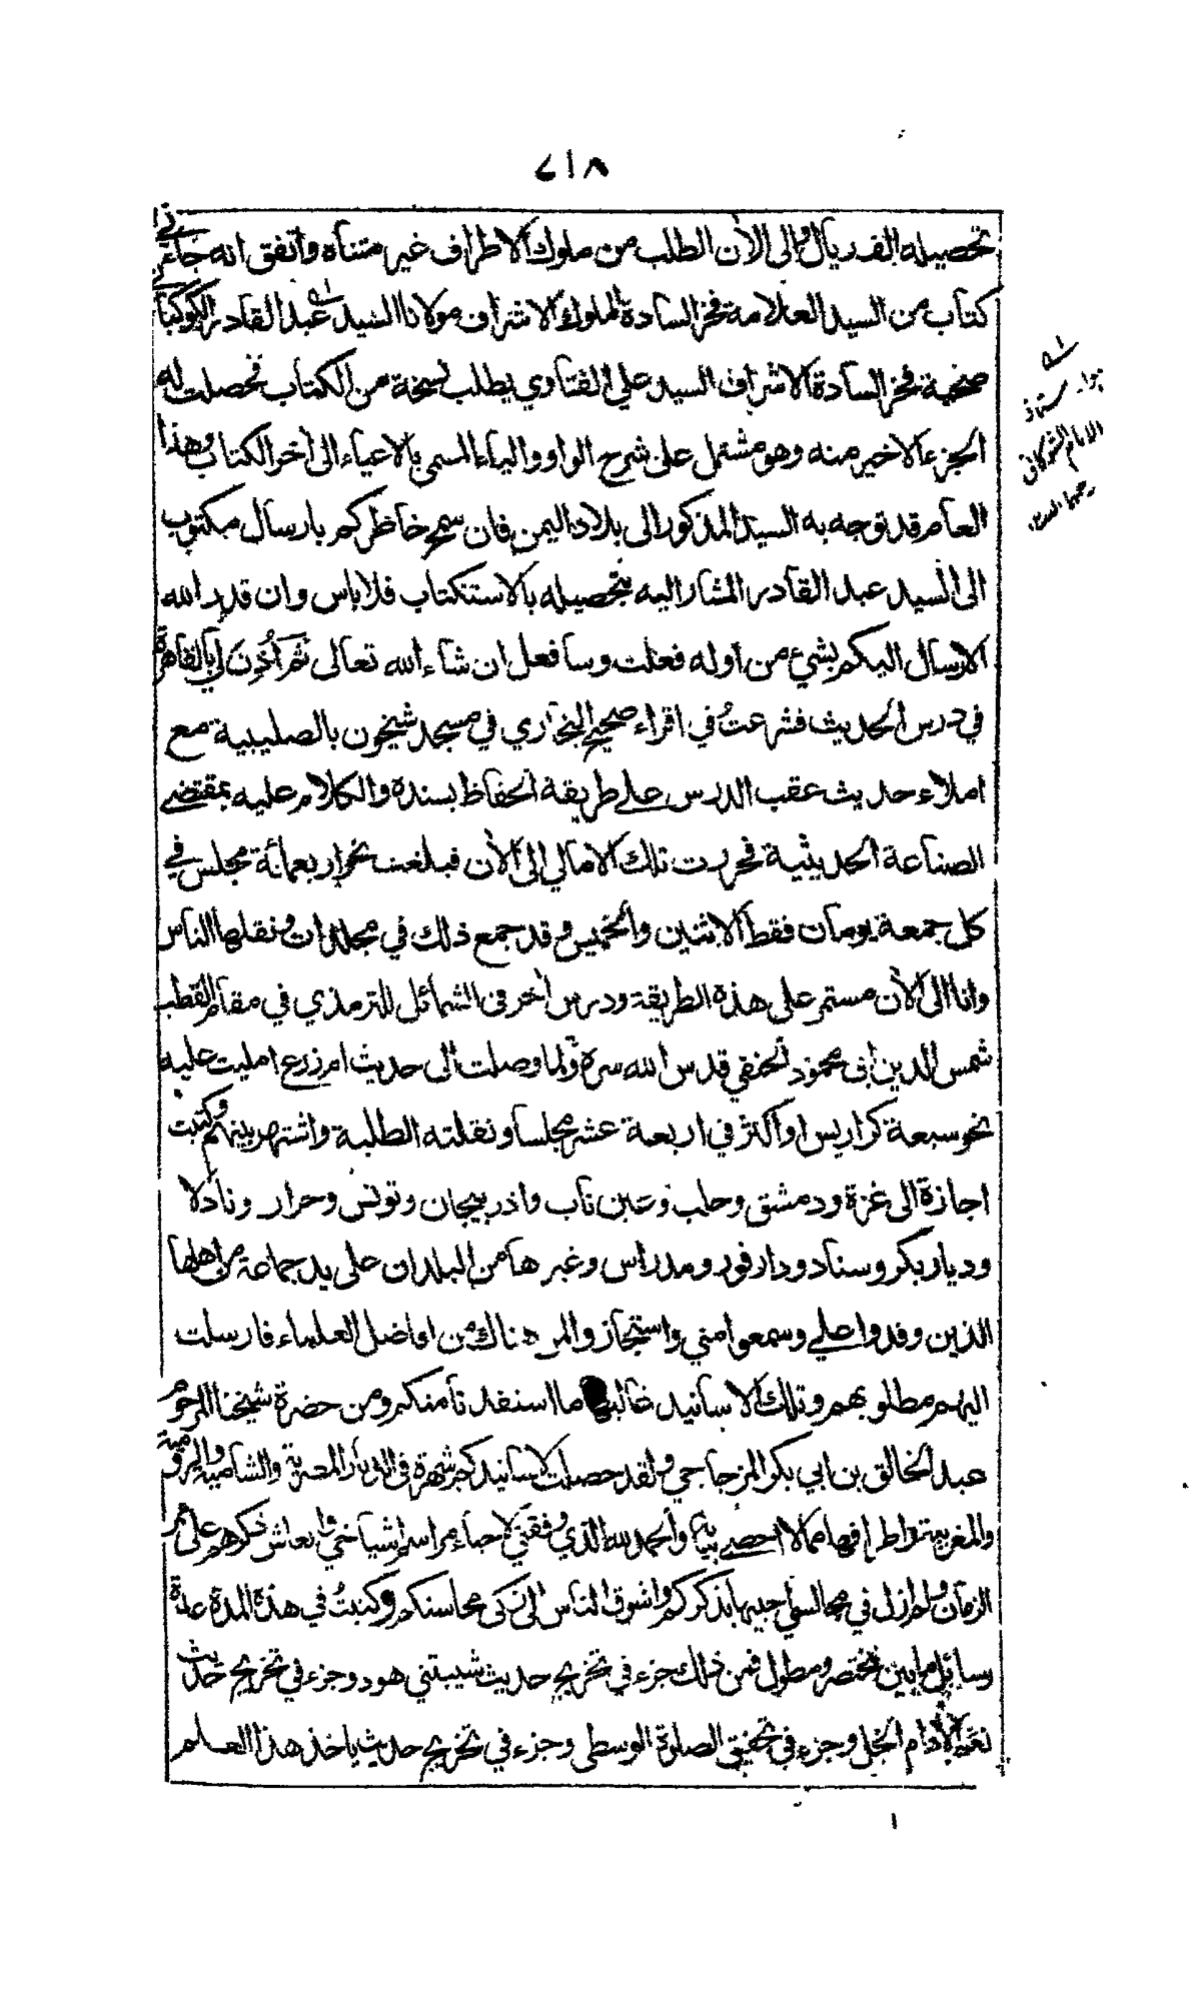 ٧١٨
تحصيله الف ريال والى الآن الطلب من ملوك الاطراف غير متناه واتفق انه جاءني
كتاب من السيد العلامة فخر السادة الملوك الاشراف مولانا السيد عبد القادر الكوكباني
صحبة فخر السادة الاشراف السيد علي القناوي يطلب نسخة من الكتاب فحصلت له
الجزء الاخير منه وهو مشتمل على شرح الواو والياء المسمى بالاعياء الى آخر الكتاب وهذا
العام قد توجه به السيد المذكور الى بلاد اليمن فان سمح خاطركم بارسال مكتوب
الى السيد عبد القادر المشار اليه بتحصيله بالاستنكتاب فلا باس وان قدر الله
الارسال اليكم بشيء من اوله فعلت وسافعل ان شاء الله تعالى ثم أُذِنَ لي بالقاهرة
في درس الحديث فشرعتُ في اقراء صحيح البخاري في مسجد شيخون بالصليبية مع
املاء حديث عقب الدرس على طريقة الحفاظ بسنده والكلام عليه بمقتضى
الصناعة الحديثية فحررت تلك الامالي الى الآن فبلغت نحو اربعمائة مجلس في
كل جمعة يومان فقط الاثنين والخميس وقد جمع ذلك في مجلدات ونقلها الناس
وانا الى الآن مستمر على هذه الطريقة ودرس آخر في الشمائل للترمذي في مقام القطب
شمس الدين ابي محمود الحنفي قدس الله سره ولما وصلت الى حديث ام زرع امليت عليه
نحو سبعة كراريس او اكثر في اربعة عشر مجلسا ونقلته الطلبة واشتهر بينهم وكتبت
اجازة الى غزة ودمشق وحلب وعين تاب واذربيجان وتونس وحرار ونادلا
وديار بكر وسناد ودارفور ومدراس وغيرها من البلدان على يد جماعة من اهلها
الذين وفدوا علي وسمعوا مني واستجازوا لمن هناك من افاضل العلماء فارسلت
اليهم مطلوبهم وتلك الاسانيد غالبها ما استفدنا منكم ومن حضرة شيخنا المرحوم
عبد الخالق بن ابي بكر المزجاجي ولقد حصلت لاسانيدكم شهرة في الديار المصرية والشامية والرومية
والمغربية واطرافها مما لا احصي بيانه والحمد لله الذي وفقني لاحياء مراسم اشياخي وانعاش ذكرهم على ممر
الزمان ولم ازل في مجالسي اجيبها بذكركم واشوق الناس الى زكي محاسنكم وكتبتُ في هذه المدة عدة
رسائل ما بين مختصر ومطول فمن ذلك جزء في تخريج حديث شيبتني هود وجزء في تخريج حديث
نعم الادام الخل وجزء في تحقيق الصلوة الوسطى وجزء في تخريج حديث ياخذ هذا العلم
الامام الشوكاني